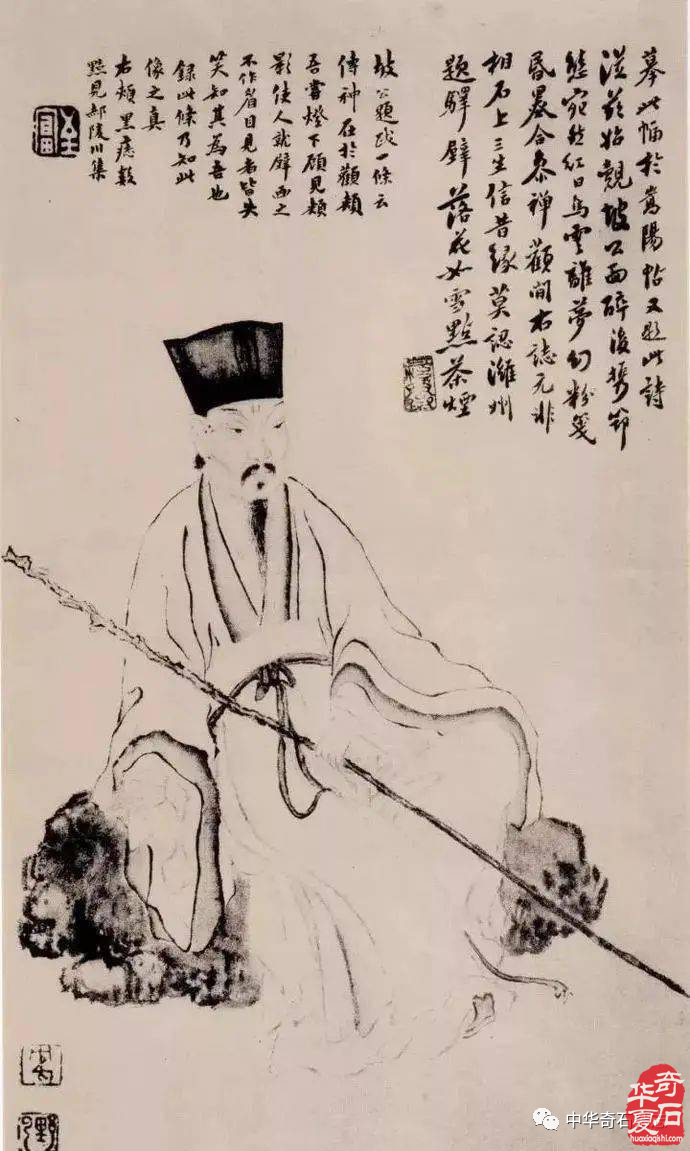 摹此幅於嵩陽帖又題此詩
從茲始覿坡公面醉後擕筇
態宛然紅日烏雲離夢幻粉箋
昏墨合參禪顴間右誌元非
相石上三生信昔緣莫認濰州
題驛壁落花如雪點茶煙
坡公題跋一條云
傳神在於顴頰
吾嘗燈下顧見頰
影使人就壁画之
不作眉目見者皆失
笑知其為吾也
録此條乃知此
像之真
右頰黑痣數
點見郝陵川集
中华奇石
华夏奇石
huaxiaqishi.com